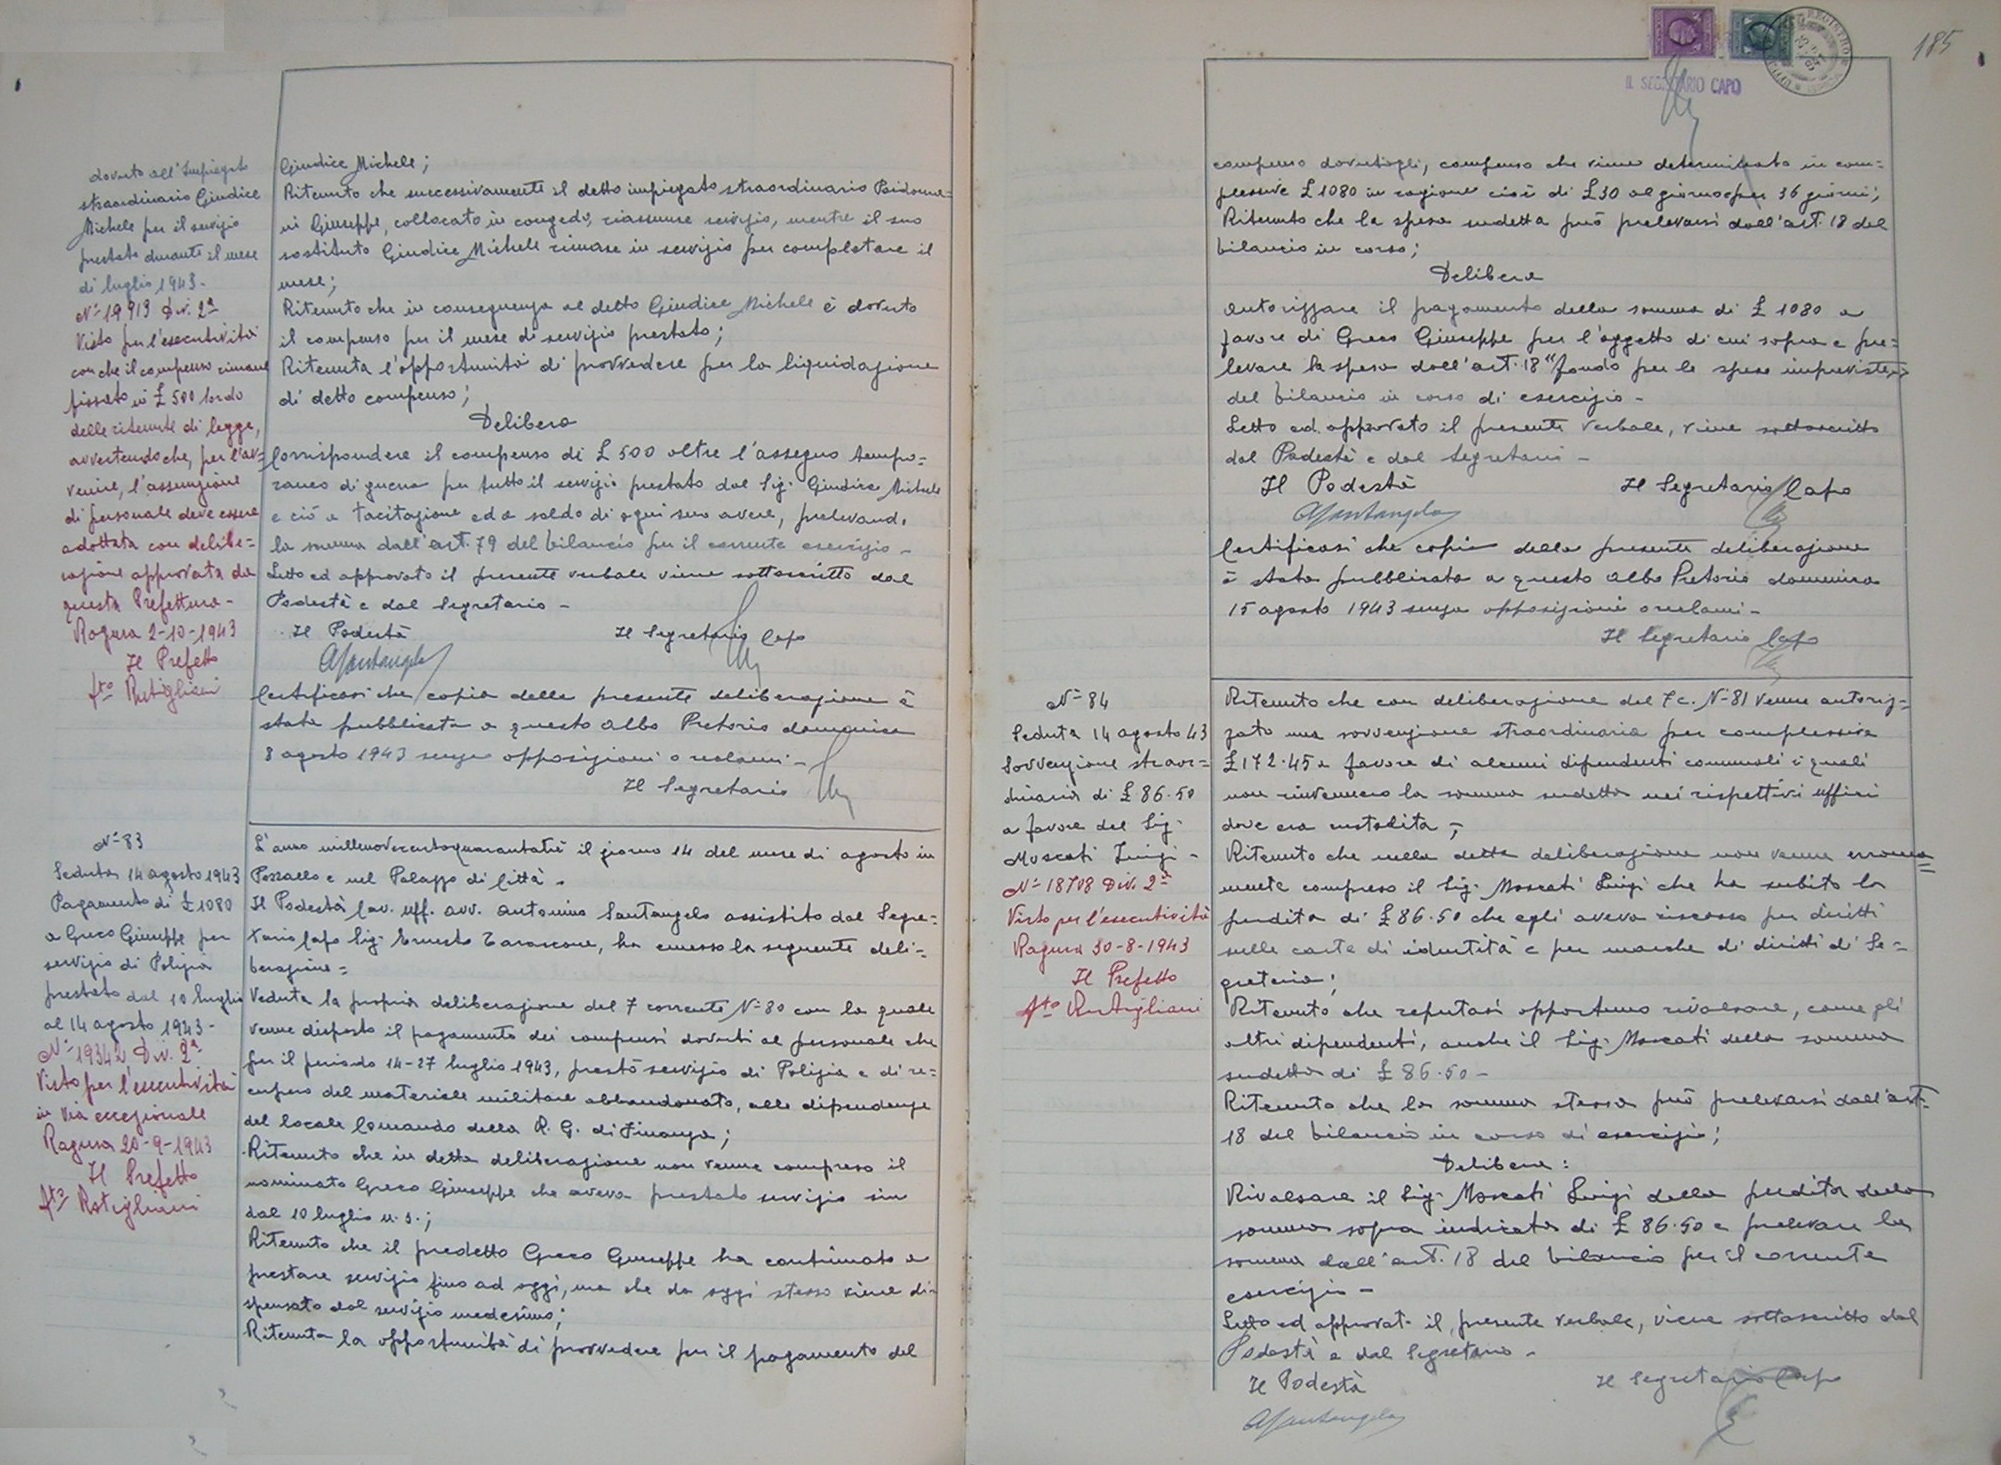 dovuto all'Impiegato
straordinario Giudice
Michele per il servizio
prestato durante il mese
di luglio 1943.-
N° 19913 Div. 2ª
Visto per l'esecutività
con che il compenso rimane
fissato in £ 500 lordo
delle ritenute di legge,
avvertendo che, per l'av=
venire, l'assunzione
di personale deve essere
adottata con delibe=
razione approvata da
questa Prefettura -
Ragusa 2-10-1943
Il Prefetto
fto Rutigliani
Giudice Michele;
Ritenuto che successivamente il detto impiegato straordinario
ni Giuseppe, collocato in congedo, riassunse servizio, mentre il suo
sostituto Giudice Michele rimase in servizio per completare il
mese;
Ritenuto che in conseguenza al detto Giudice Michele è dovuto
il compenso per il mese di servizio prestato;
Ritenuta l'opportunità di provvedere per la liquidazione
di detto compenso;
Delibera
Corrispondere il compenso di £ 500 oltre l'assegno tempo=
raneo di guerra per tutto il servizio prestato dal Sig. Giudice Michele
e ciò a tacitazione ed a saldo di ogni suo avere, prelevando
la somma dall'art. 79 del bilancio per il corrente esercizio -
Letto ed approvato il presente verbale viene sottoscritto dal
Podestà e dal Segretario -
Il Podestà Il Segretario Capo
ASantangelo
Certificasi che copia della presente deliberazione è
stata pubblicata a questo Albo Pretorio domenica
8 agosto 1943 senza opposizioni o reclami -
Il Segretario
N° 83
Seduta 14 agosto 1943
Pagamento di £ 1080
a Greco Giuseppe per
servizio di Polizia
prestato dal 10 luglio
al 14 agosto 1943 -
N° 19342 Div. 2ª
Visto per l'esecutività
in via eccezionale
Ragusa 20-9-1943
Il Prefetto
fto Rutigliani
L'anno millenovecentoquarantatrè il giorno 14 del mese di agosto in
Pozzallo e nel Palazzo di Città -
Il Podestà Cav. Uff. Avv. Antonino Santangelo assistito dal Segre=
tario Capo Sig. Ernesto Tarascone, ha emesso la seguente deli=
berazione =
Veduta la propria deliberazione del 7 corrente N° 80 con la quale
venne disposto il pagamento dei compensi dovuti al personale che
per il periodo 14-27 luglio 1943, prestò servizio di Polizia e di re=
cupero del materiale militare abbandonato, alle dipendenze
del locale Comando della R. G. di Finanza;
Ritenuto che in detta deliberazione non venne compreso il
nominato Greco Giuseppe che aveva prestato servizio sin
dal 10 luglio u. s.;
Ritenuto che il predetto Greco Giuseppe ha continuato a
prestare servizio fino ad oggi, ma che da oggi stesso viene di=
spensato dal servizio medesimo;
Ritenuta la opportunità di provvedere per il pagamento del
185
IL SEGRETARIO CAPO
compenso dovutogli, compenso che viene determinato in com=
plessive £ 1080 in ragione cioè di £ 30 al giorno per 36 giorni;
Ritenuto che la spesa sudetta può prelevarsi dall'art. 18 del
bilancio in corso;
Delibera
Autorizzare il pagamento della somma di £ 1080 a
favore di Greco Giuseppe per l'oggetto di cui sopra e pre=
levare la spesa dall'art. 18 "fondo per le spese impreviste"
del bilancio in corso di esercizio -
Letto ed approvato il presente verbale, viene sottoscritto
dal Podestà e dal Segretario -
Il Podestà Il Segretario Capo
ASantangelo
Certificasi che copia della presente deliberazione
è stata pubblicata a questo Albo Pretorio domenica
15 agosto 1943 senza opposizioni o reclami -
Il Segretario Capo
N° 84
Seduta 14 agosto 43
Sovvenzione straor=
dinaria di £ 86.50
a favore del Sig.
Moscati Luigi -
N° 18708 Div. 2ª
Visto per l'esecutività
Ragusa 30-8-1943
Il Prefetto
fto Rutigliani
Ritenuto che con deliberazione del 7 c. N° 81 venne autoriz=
zata una sovvenzione straordinaria per complessive
£ 172.45 a favore di alcuni dipendenti comunali i quali
non rinvennero la somma sudetta nei rispettivi uffici
dove era custodita;
Ritenuto che nella detta deliberazione non venne erronea=
mente compreso il Sig. Moscati Luigi che ha subito la
perdita di £ 86.50 che egli aveva riscosso per diritti
sulle carte di identità e per marche di diritti di Se=
greteria;
Ritenuto che reputasi opportuno rivalsare, come gli
altri dipendenti, anche il Sig. Moscati della somma
sudetta di £ 86.50 -
Ritenuto che la somma stessa può prelevarsi dall'art.
18 del bilancio in corso di esercizio;
Delibera:
Rivalsare il Sig. Moscati Luigi della perdita della
somma sopra indicata di £ 86.50 e prelevare la
somma dall'art. 18 del bilancio per il corrente
esercizio -
Letto ed approvato il presente verbale, viene sottoscritto dal
Podestà e dal Segretario -
Il Podestà Il Segretario Capo
ASantangelo